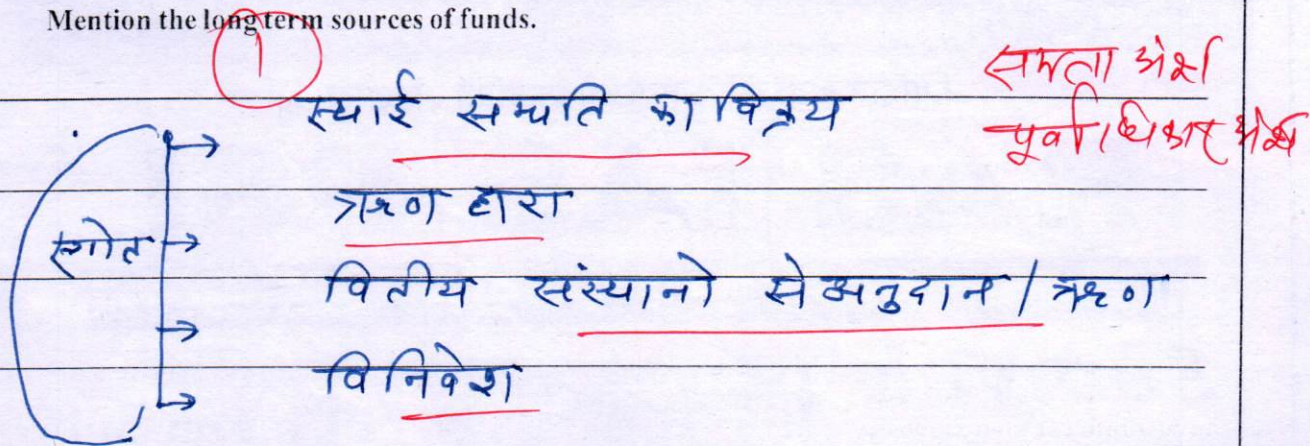 Mention the long term sources of funds.
1
समता अंश
पूर्वाधिकार अंश
स्थाई सम्पति का विक्रय
ऋण द्वारा
स्त्रोत
वितीय संस्थानो से अनुदान / ऋण
विनिवेश